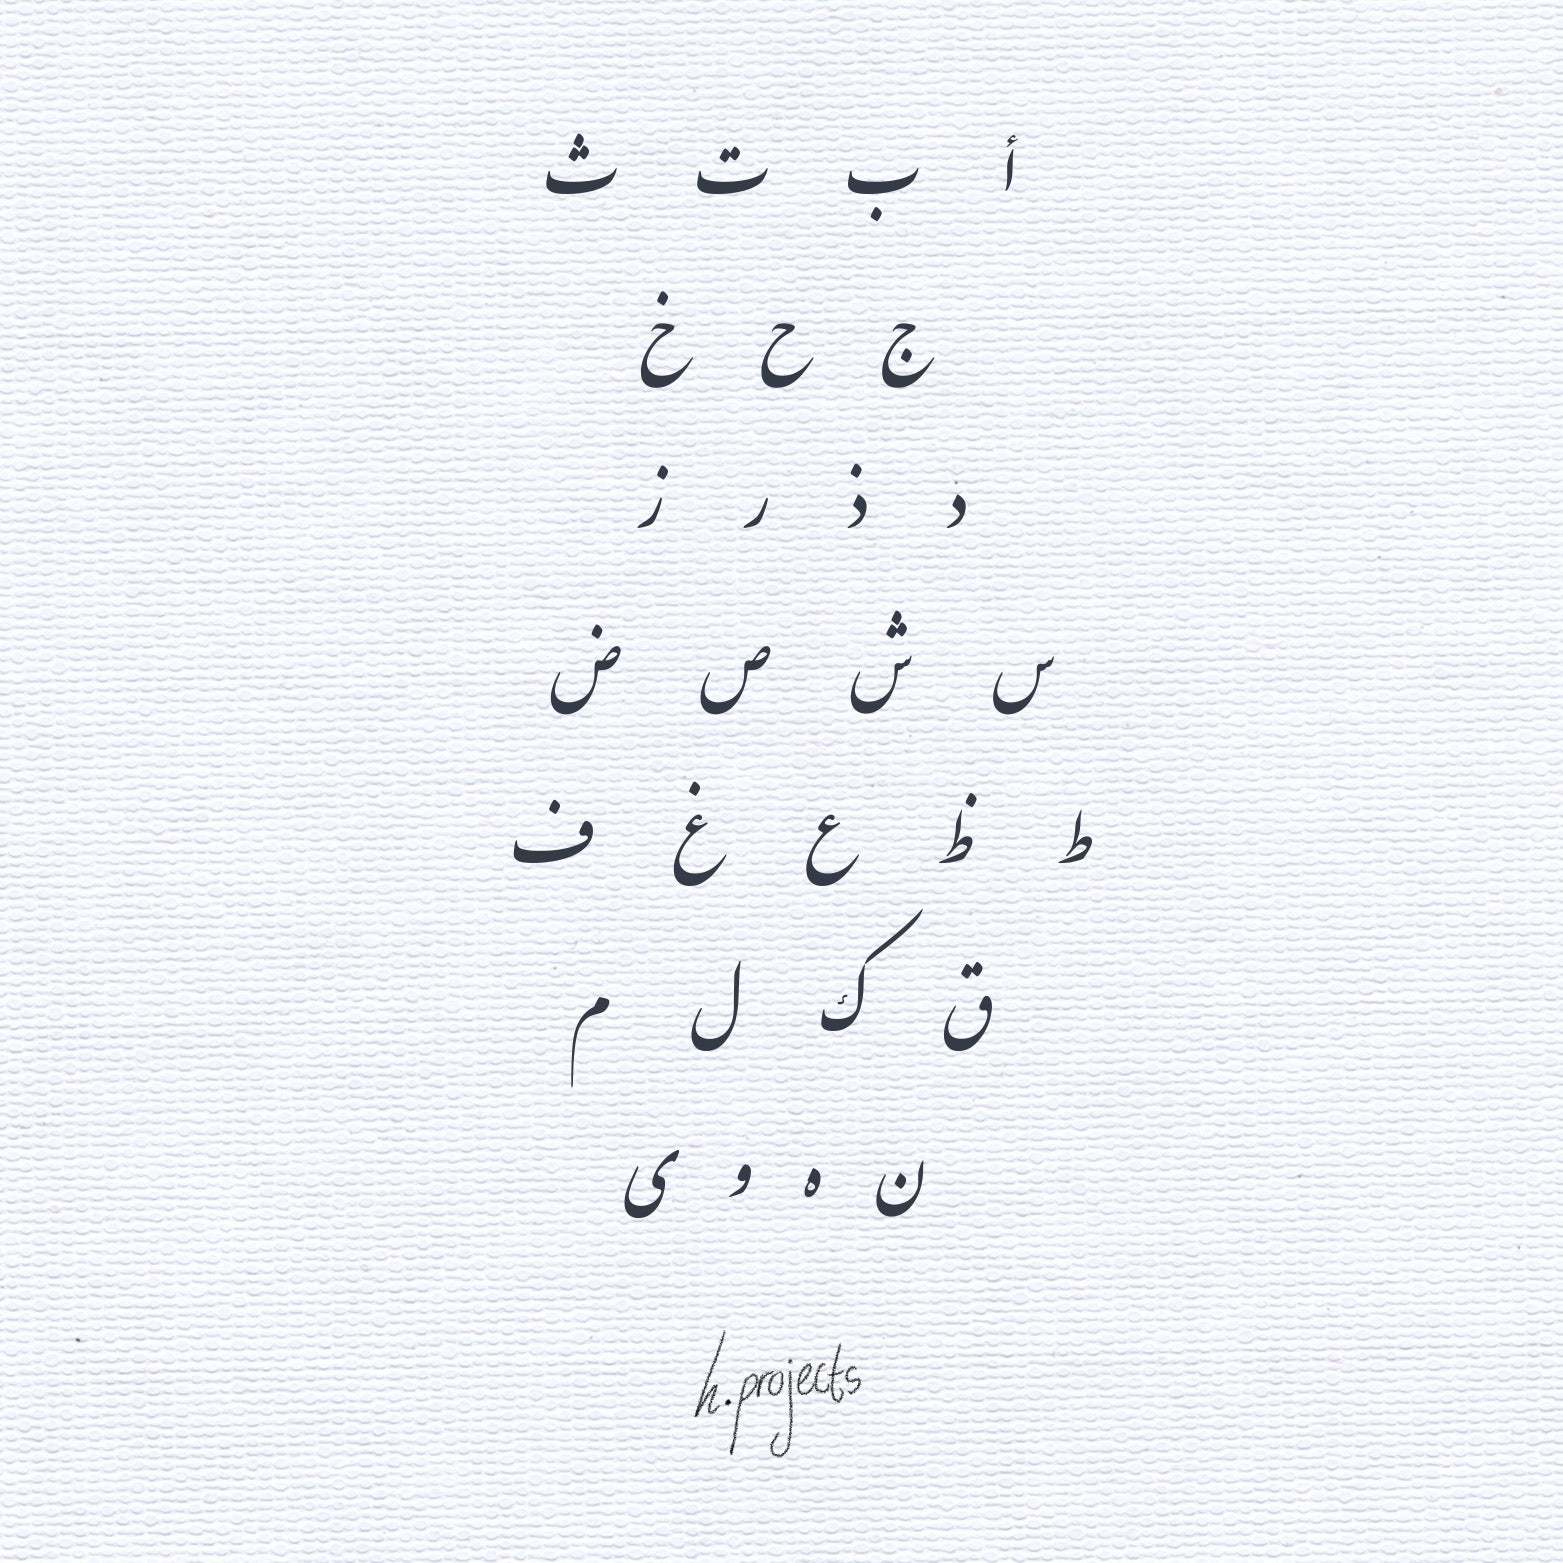 أ ب ت ث
ج ح خ
د ذ ر ز
س ش ص ض
ط ظ ع غ ف
ق ك ل م
ن ه و ى
h.projects